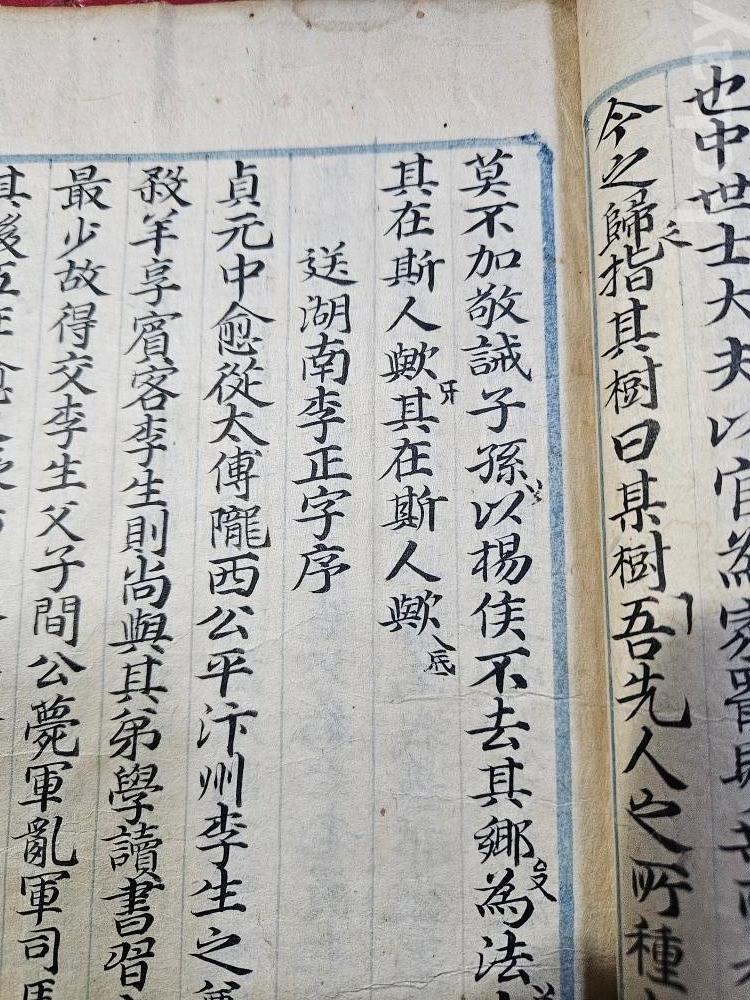 也中世士大夫以官為家罷
今之歸指其樹曰某樹吾先人之所種
莫不加敬誡子孫以楊侯不去其鄉為法
其在斯人歟其在斯人歟
送湖南李正字序
貞元中愈從太傅隴西公平汴州李生之
殺羊享賓客李生則尚與其弟學讀書習
最少故得交李生父子間公薨軍亂軍司馬
其後